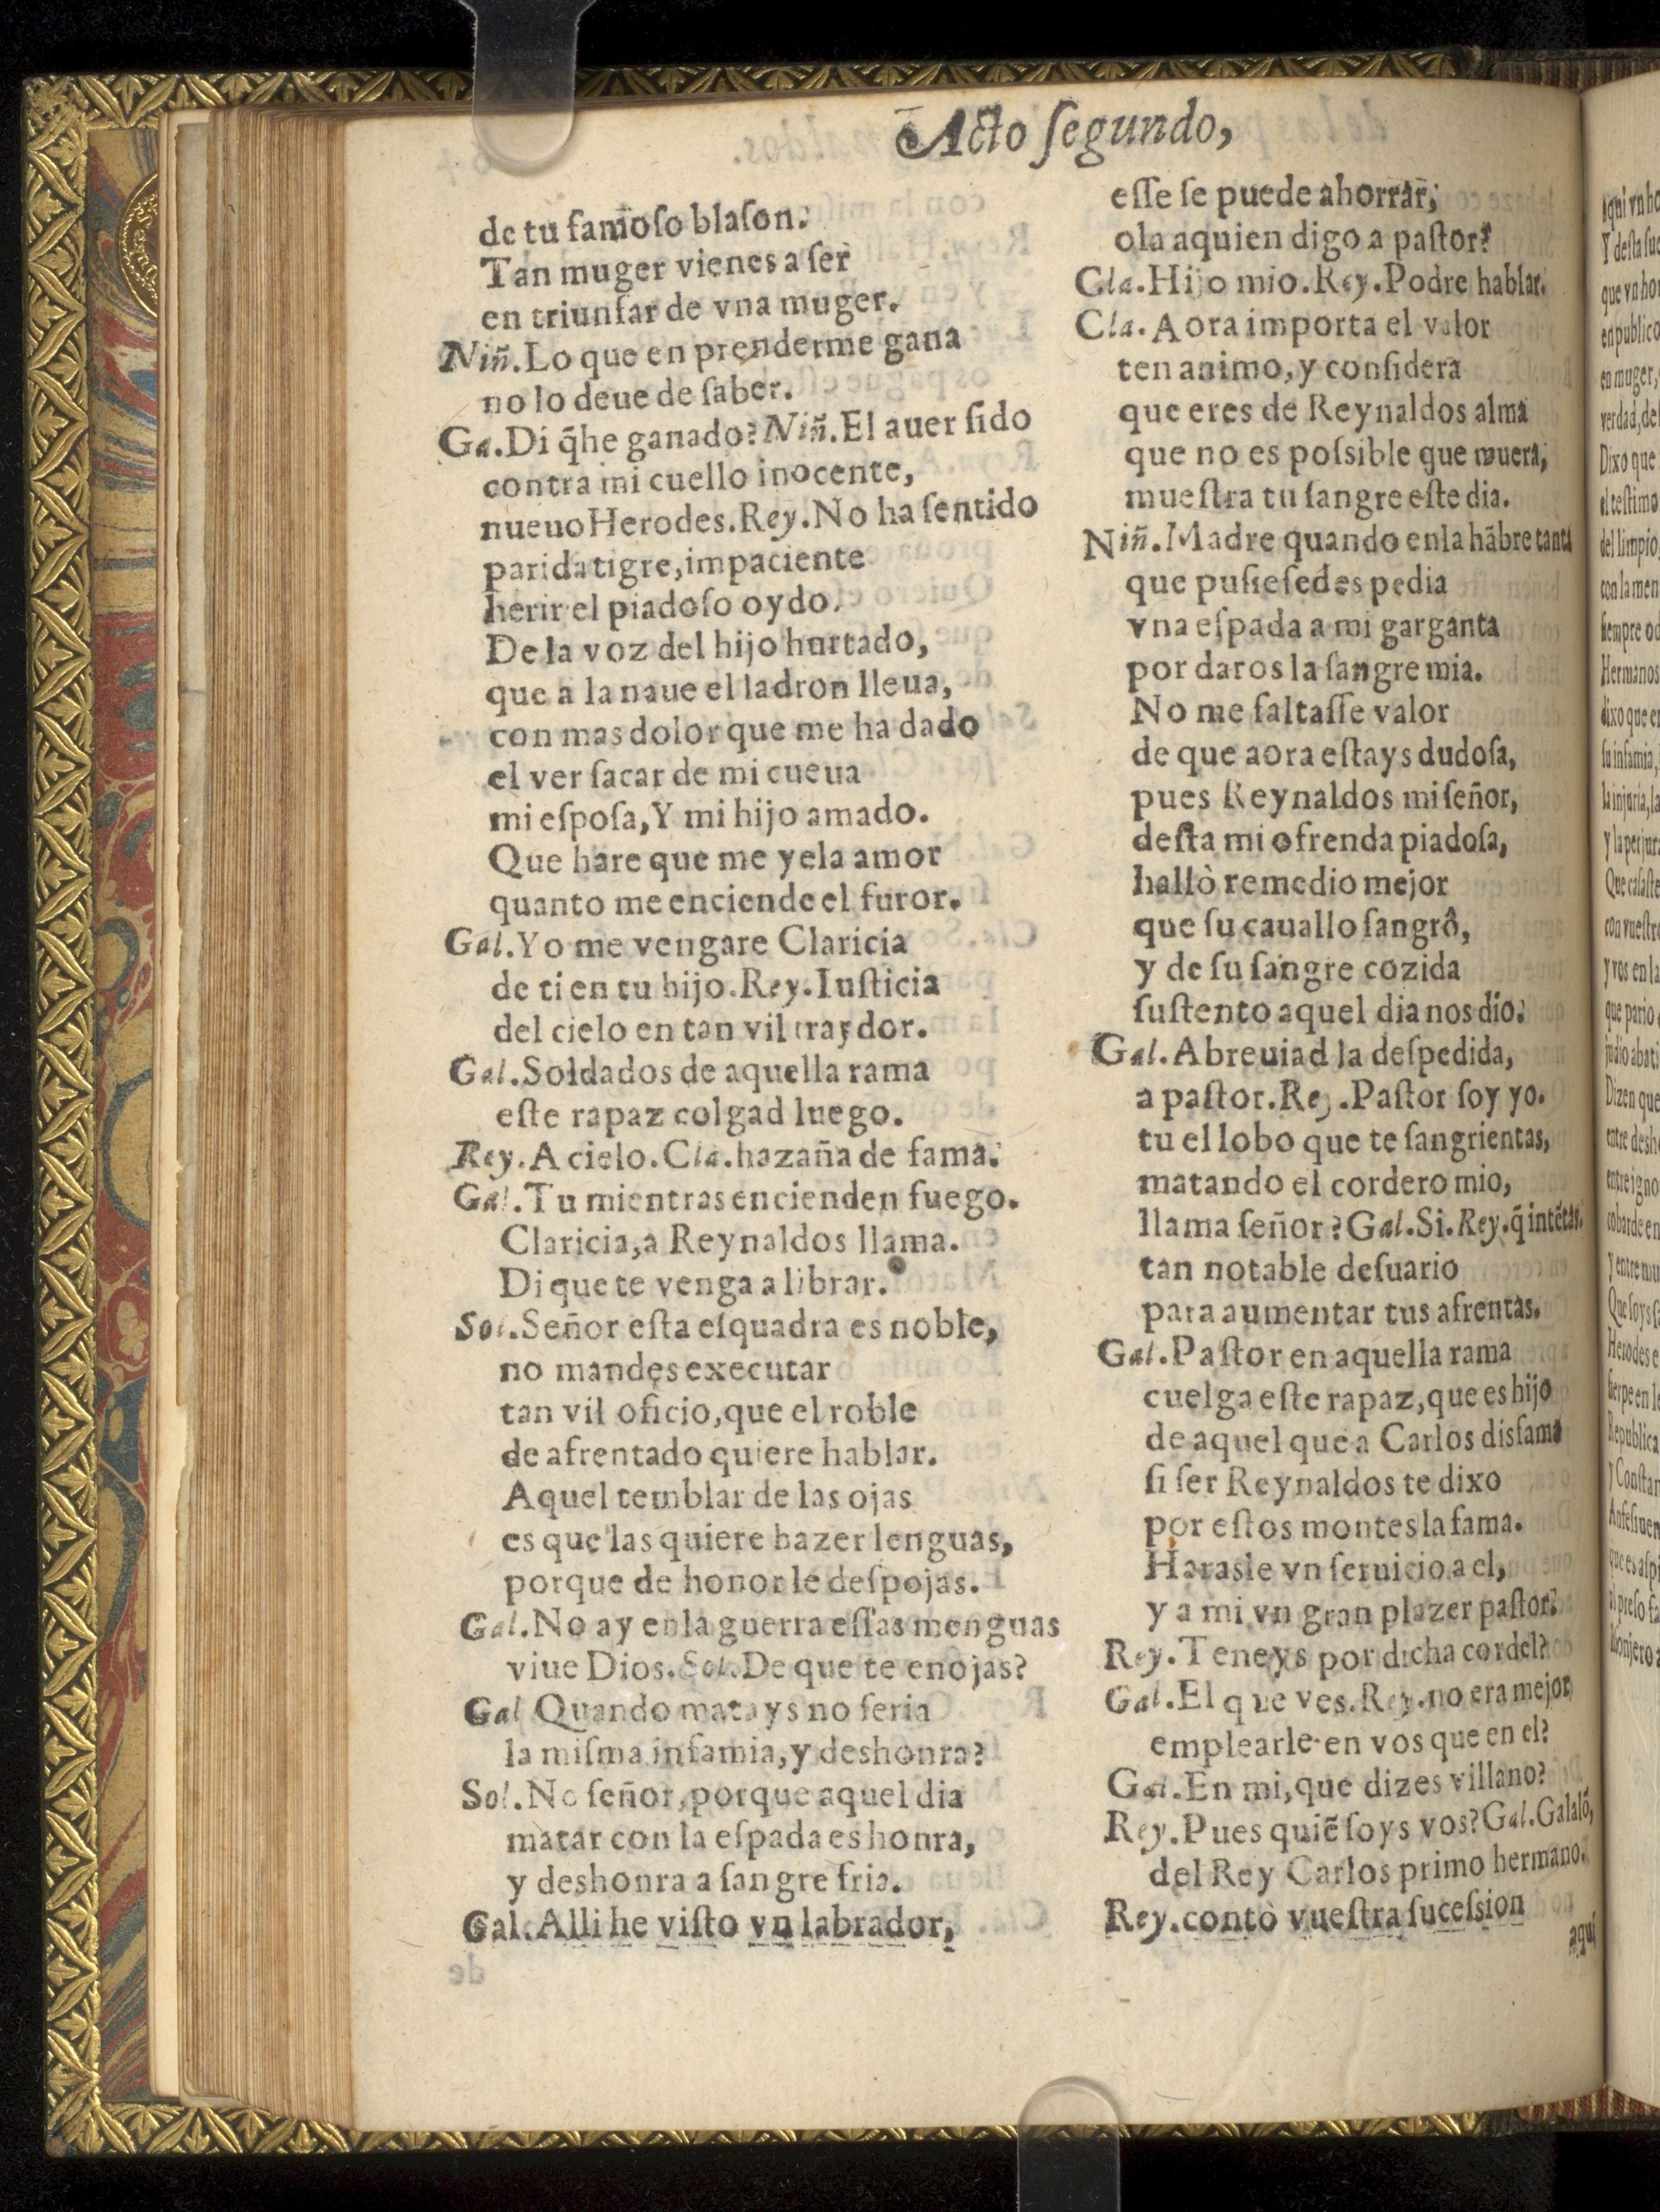 Acto ſegundo,
de tu famoſo blaſon.
Tan muger vienes a ſer
en triunfar de vna muger.
Niñ.Lo que en prenderme gana
no lo deue de ſaber.
Ga.Di q̃ he ganado? Niñ.El auer ſido
contra mi cuello inocente,
nueuo Herodes.Rey.No ha ſentido
parida tigre, impaciente
herir el piadoſo oydo.
De la voz del hijo hurtado,
que a la naue el ladron lleua,
con mas dolor que me ha dado
el ver ſacar de mi cueua
mi eſpoſa, Y mi hijo amado.
Que hare que me yela amor
quanto me enciende el furor.
Gal.Yo me vengare Claricia
de ti en tu hijo.Rey.Iuſticia
del cielo en tan vil traydor.
Gal.Soldados de aquella rama
eſte rapaz colgad luego.
Rey.A cielo.Cla.hazaña de fama.
Gal.Tu mientras encienden fuego.
Claricia, a Reynaldos llama.
Di que te venga a librar.
Sol.Señor eſta eſquadra es noble,
no mandes executar
tan vil oficio, que el roble
de afrentado quiere hablar.
Aquel temblar de las ojas
es que las quiere hazer lenguas,
porque de honor le deſpojas.
Gal.No ay en la guerra eſſas menguas
viue Dios.Sol.De que te enojas?
Gal Quando matays no ſeria
la miſma infamia, y deshonra?
Sol.No ſeñor, porque aquel dia
matar con la eſpada es honra,
y deshonra a ſangre fria.
Gal.Alli he viſto vn labrador,
eſſe ſe puede ahorrar,
ola aquien digo a paſtor?
Cla.Hijo mio.Rey.Podre hablar.
Cla.Aora importa el valor
ten animo, y conſidera
que eres de Reynaldos alma
que no es poſsible que muera,
mueſtra tu ſangre eſte dia.
Niñ.Madre quando en la hãbre tanta
que puſieſedes pedia
vna eſpada a mi garganta
por daros la ſangre mia.
No me faltaſſe valor
de que aora eſtays dudoſa,
pues Reynaldos mi ſeñor,
deſta mi ofrenda piadoſa,
hallò remedio mejor
que ſu cauallo ſangrô,
y de ſu ſangre cozida
ſuſtento aquel dia nos dio.
Gal.Abreuiad la deſpedida,
a paſtor.Rey.Paſtor ſoy yo.
tu el lobo que te ſangrientas,
matando el cordero mio,
llama ſeñor? Gal.Si.Rey.q̃ intẽtas.
tan notable deſuario
para aumentar tus afrentas.
Gal.Paſtor en aquella rama
cuelga eſte rapaz, que es hijo
de aquel que a Carlos disfama
ſi ſer Reynaldos te dixo
por eſtos montes la fama.
Harasle vn ſeruicio a el,
y a mi vn gran plazer paſtor.
Rey.Teneys por dicha cordel?
Gal.El que ves.Rey.no era mejor
emplearle en vos que en el?
Gal.En mi, que dizes villano?
Rey.Pues quiẽ ſoys vos? Gal.Galalõ,
del Rey Carlos primo hermano.
Rey.contò vueſtra ſuceſsion
aqui